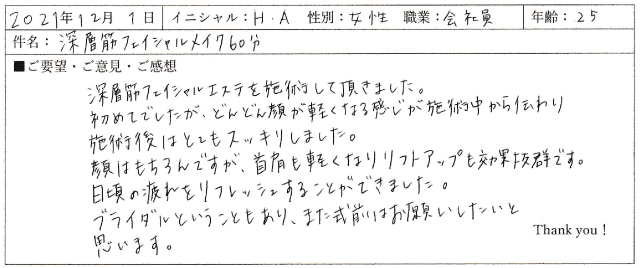 2021年12月 1日 イニシャル：H・A 性別：女性 職業：会社員 年齢：25
件名：深層筋フェイシャルメイク60分
■ご要望・ご意見・ご感想
深層筋フェイシャルエステを施術して頂きました。
初めてでしたが、どんどん顔が軽くなる感じが施術中から伝わり
施術後はとてもスッキリしました。
顔はもちろんですが、首肩も軽くなりリフトアップも効果抜群です。
日頃の疲れをリフレッシュすることができました。
ブライダルということもあり、また式前はお願いしたいと
思います。
Thank you！